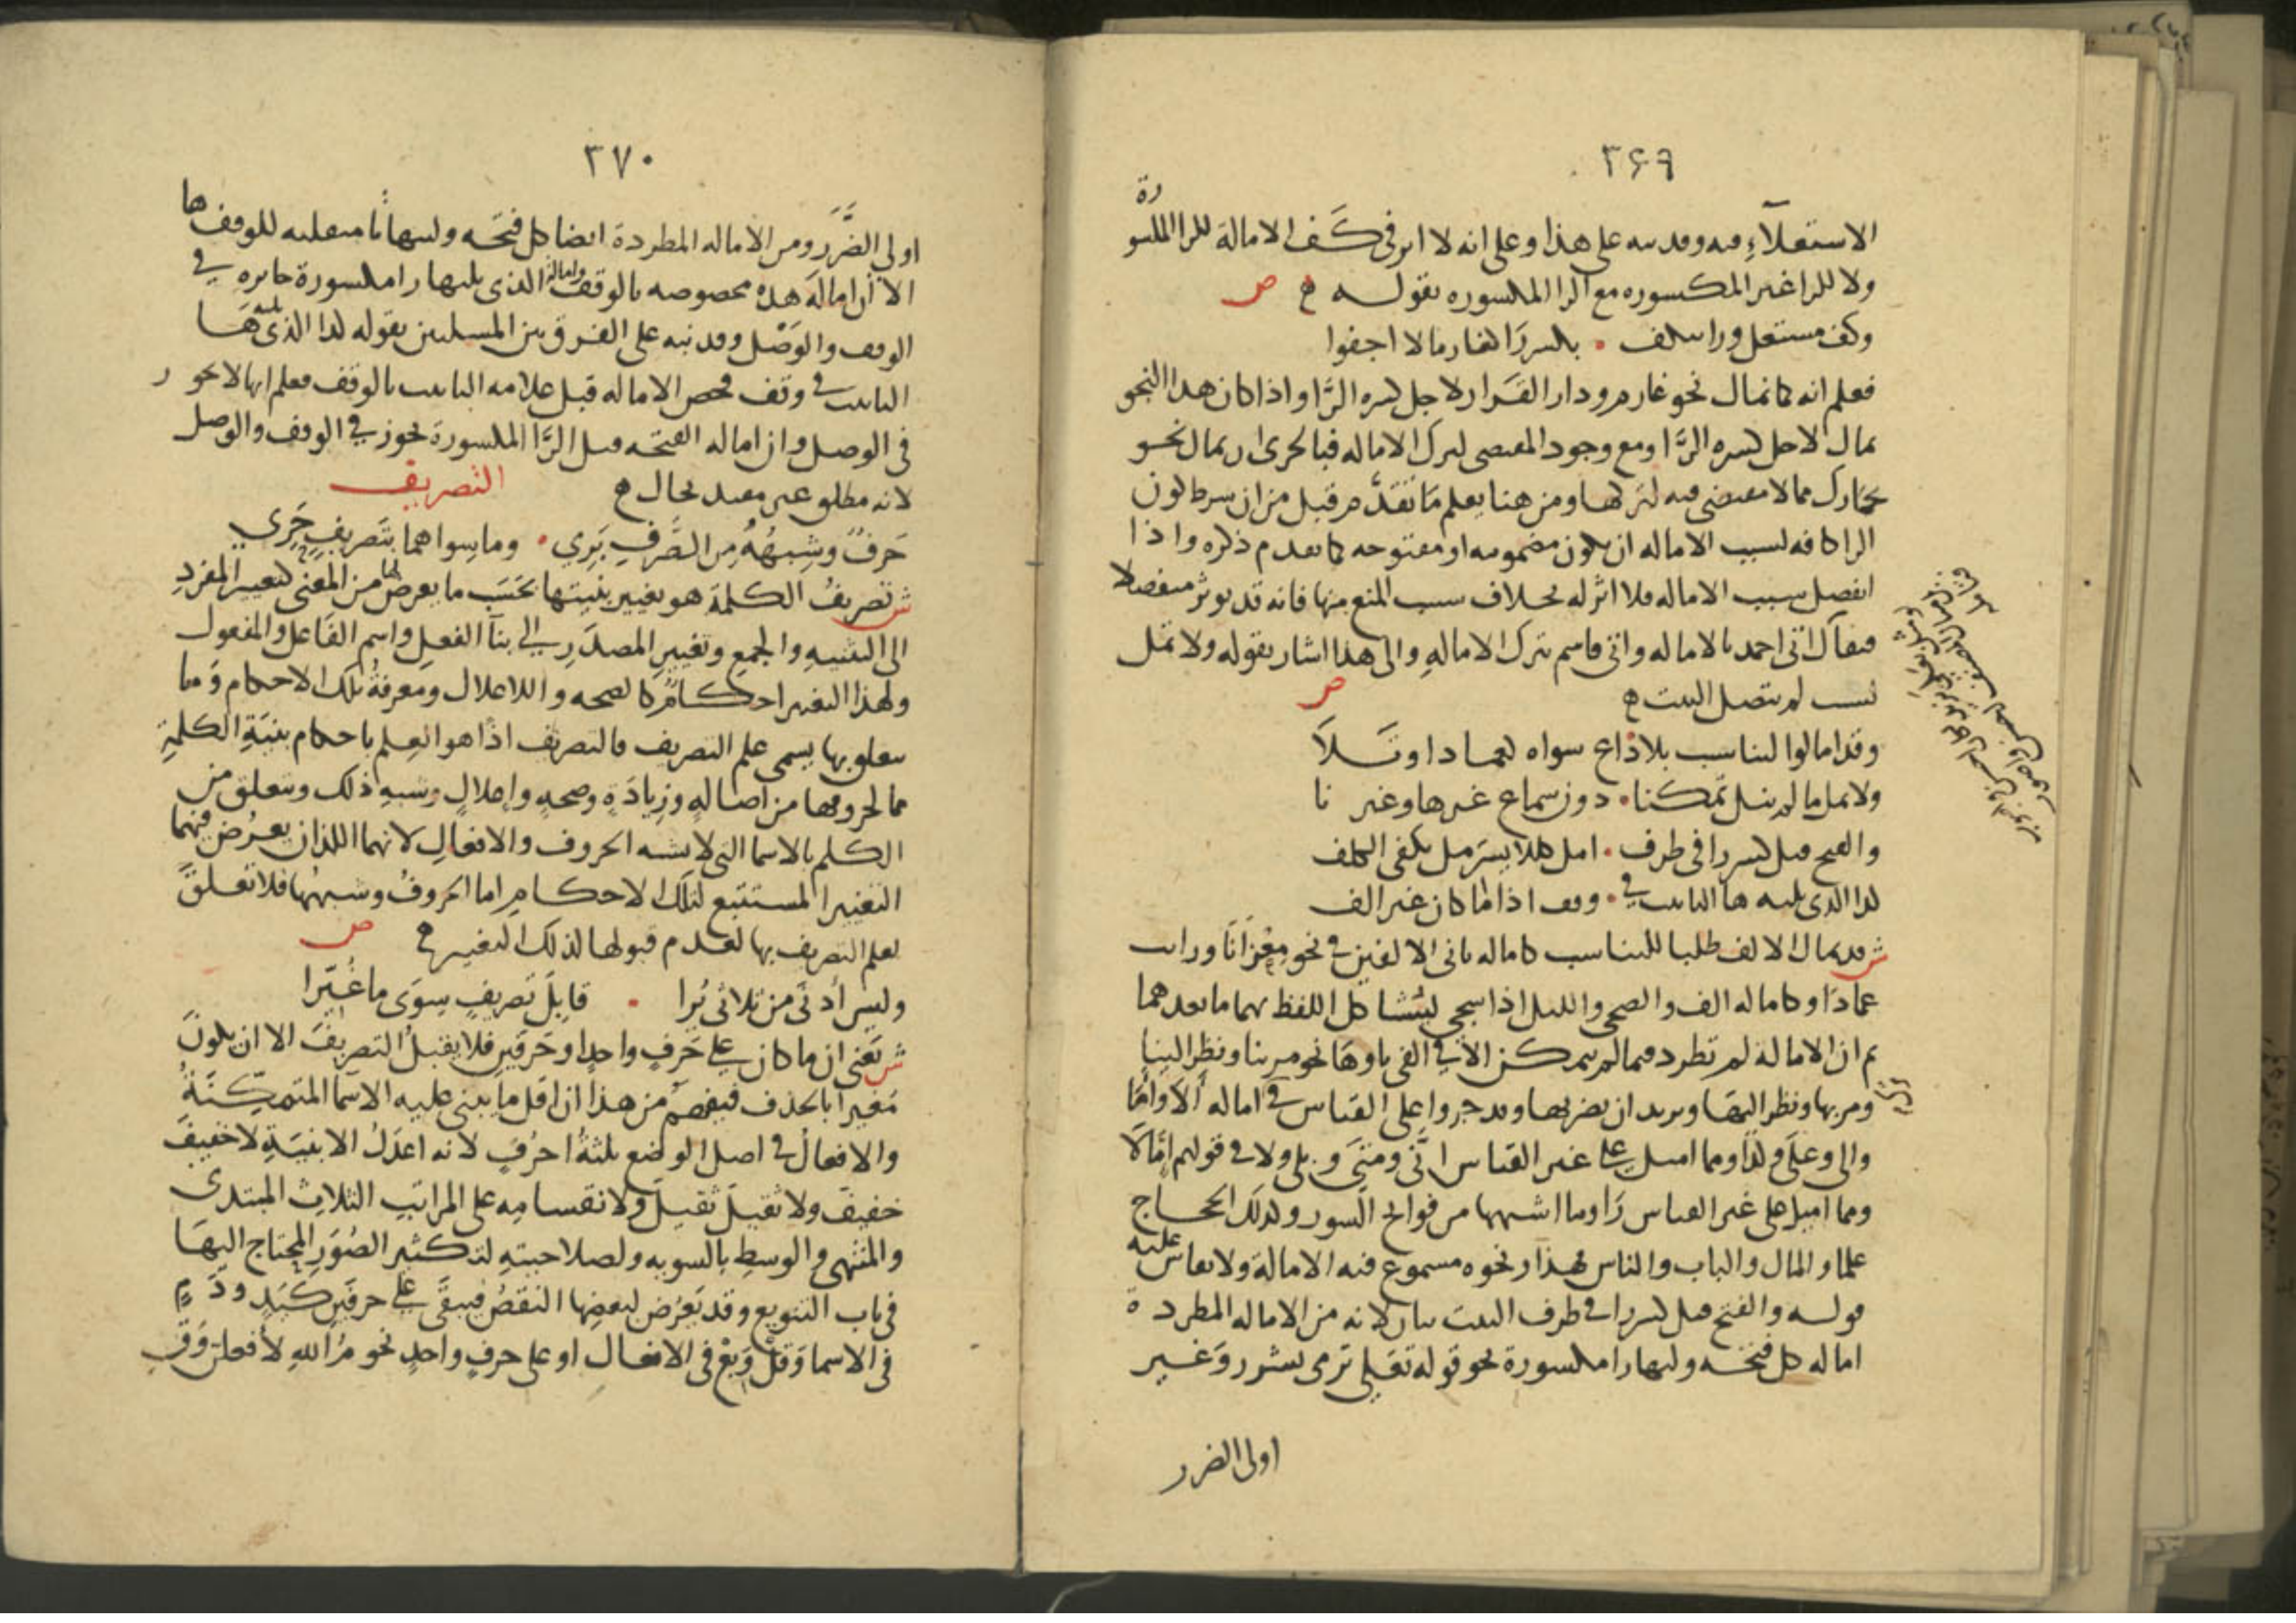 ٣۶٩
الاستعلآء فيه وقد نبه على هذا وعلى انه لا اثر في كف الامالة للرا المكسورة
ولا للرا غير المكسوره مع الرا المكسوره بقوله ص
وكف مستعل ورا ينكف • بكسر را كغارما لا اجفوا
فعلم انه كما تمال نحو غارم ودار القرار لاجل كسره الرا واذا كان هذا النحو
يمال لاجل كسره الرا ومع وجود المقتضى لترك الاماله فبالحرى ان يمال نحو
حمارك مما لا مقتضى فيه لتركها ومن هنا يعلم ما تقدم قبل من ان شرط كون
الرا كافه لسبب الاماله ان يكون مضمومه او مفتوحه كما تقدم ذكره واذا
انفصل سبب الاماله فلا اثر له بخلاف سبب المنع منها فانه قد يوثر منفصلا
فيقال اتى احمد بالاماله واتى قاسم بترك الاماله والى هذا اشار بقوله ولا تمل
لسبب لم يتصل البيت ص
وقد امالوا لتناسب بلا داع سواه كعمادا وتلا
ولا تمل ما لم ينل تمكنا • دون سماع غيرها وغير نا
والفتح قبل كسر را في طرف • امل كللايسر مل تكفى الكلف
كذا الذى يليه ها التانيث في • وقف اذا ما كان غير الف
ش قد يمال الالف طلبا للتناسب كاماله ثانى الالفين في نحو مغزانا ورايت
عمادا وكاماله الف والضحى والليل اذا سجى ليتشاكل اللفظ بهما ما بعدهما
ثم ان الامالة لم تطرد فيما لم يتمكن الا في الفى نا وها نحو مر بنا ونظر الينا
ومر بها ونظر اليها ويريد ان يضربها وقد جروا على القياس في اماله الا واما
والى وعلى ولدا ومما اميل على غير القياس انى ومتى وبلى ولا في قولهم امالا
ومما اميل على غير القياس را وما اشبهها من فواتح السور وكذلك الحجاج
علما والمال والباب والناس فهذا ونحوه مسموع فيه الامالة ولا يقاس عليه
قوله والفتح قبل كسر را في طرف البيت بيان لانه من الاماله المطردة
اماله كل فتحه وليها را مكسورة نحو قوله تعلى ترمى بشرر وغير
اولى الضرر
٣٧٠
اولى الضرر ومن الاماله المطردة ايضا كل فتحه وليها تا منقلبه للوقف ها
الا ان اماله هذه مخصوصه بالوقف وامالة الذى يليها را مكسورة جايزه في
الوقف والوصل وقد نبه على الفرق بين المسلتين بقوله كذا الذى يليه ها
التانيث في وقف فخص الاماله قبل علامه التانيث بالوقف فعلم انها لا تجوز
فى الوصل وان اماله الفتحه قبل الرا المكسورة تجوز في الوقف والوصل
لانه مطلق غير مقيد بحال التصريف
حرف وشبهه من الصرف بري • وما سواهما بتصريف حري
ش تصريف الكلمة هو تغيير بنيتها بحسب ما يعرض لها من المعنى كتغيير المفرد
الى التثنيه والجمع وتغيير المصدر الى بنآ الفعل واسم الفاعل والمفعول
ولهذا التغيير احكام كالصحه والاعلال ومعرفة تلك الاحكام وما
يتعلق بها يسمى علم التصريف فالتصريف اذا هو العلم باحكام بنية الكلمة
مما لحروفها من اصاله وزيادة وصحه واعلال وشبه ذلك ومتعلق من
الكلم بالاسما التى لا تشبه الحروف والافعال لانهما اللذان يعرض فيهما
التغيير المستتبع لتلك الاحكام اما الحروف وشبهها فلا تعلق
لعلم التصريف بها لعدم قبولها لذلك التغيير ص
وليس أدنى من ثلاثى يرا • قابل تصريف سوى ما غيرا
ش يعنى ان ما كان على حرف واحد او حرفين فلا يقبل التصريف الا ان يكون
مغيرا بالحذف فيفهم من هذا ان اقل ما يبنى عليه الاسما المتمكنة
والافعال في اصل الوضع ثلثة احرف لانه اعدل الابنية لا خفيف
خفيف ولا ثقيل ثقيل ولانقسامه على المراتب الثلاث المبتدى
والمنتهى والوسط بالسويه ولصلاحيته لتكثير الصور المحتاج اليها
فى باب التنويع وقد يعرض لبعضها النقص فيبقى على حرفين كيد ودم
فى الاسما وقل وبع فى الافعال او على حرف واحد نحو م الله لأفعلن وق